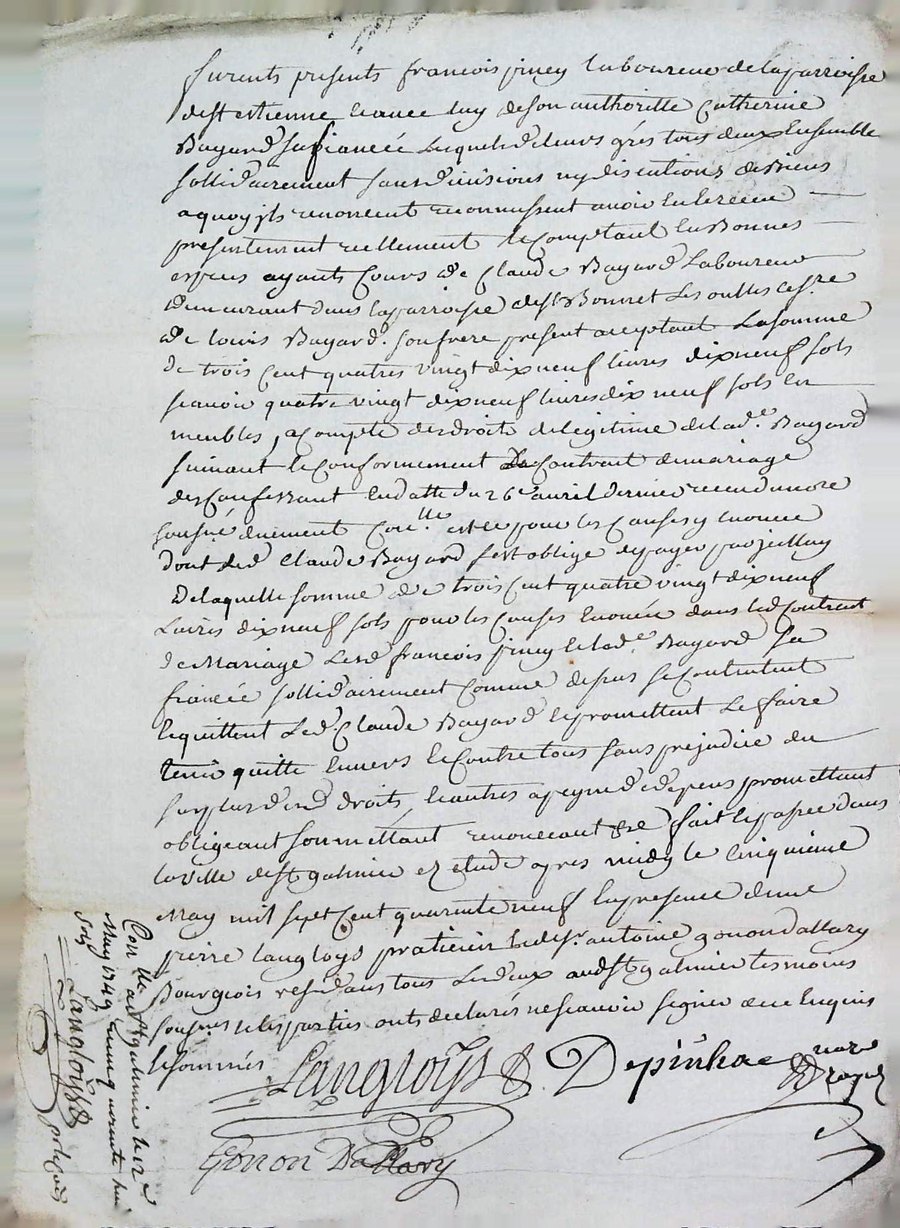 furents presents francois piney laboureur de la parroisse
de st estienne et avec luy de son authoritté Catherine
Bayard sa fiancéé lesquels de leurs grés tous deux ensemble
sollidairement sans divisions ny discutions de biens
a quoy ils renoncent reconnissent avoir eu et receu
presentement reellement et Comptant en Bonnes
especes ayants Cours de Claude Bayard Laboureur
demeurant dans la parroisse de st Bonnet Les oulles
de Louis Bayard son frere present acceptant La somme
de trois Cent quatres vingt dix neuf livres dix neuf sols
scavoir quatre vingt dix neuf livres dix neuf sols en
meubles, a Compte des droits de legitime de lad.e Bayard
suivant et Conformement Contrait de mariage
des Confessant en datte du 26e avril dernier receu du nore
sousné duement Con.lle et ce pour les Causes y enoncée
dont led. Claude Bayard sest obligé de payer par
De laquelle somme de trois Cent quatre vingt dix neuf
Livres dix neuf sols pour les Causes enoncée dans led Contrait
de Mariage Lesd francois piney et lad.e Bayard sa
fiancéé sollidairement Comme depus se Contentent
et quittent Led. Claude Bayard et promettent Le faire
tenir quitte envers et Contre tous sans prejudice du
surplus desd droits, et autres a peyne de depens promettant
obligeant soumettant renonceant &e fait et passé dans
la ville de st galmier ez etude apres midy le Cinquieme
May mil sept Cent quarente neuf en presence de me
pierre Langloys praticien et de sr. antoine gonon dallary
Bourgeois residants tous Les deux aud st galmier tesmoins
sousnes et les parties onts declarés ne scavoir signer de ce enquis
et sommés
Langloys Depinhac nore
Royal
Gonon Dallary
Con.lle a st galmier le 12e
May 1749 quarente huit
sols
Langloys